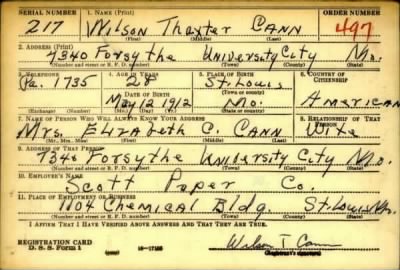 SERIAL NUMBER 1. NAME (Print) ORDER NUMBER
217 Wilson Thaxter Cann 497
(First) (Middle) (Last)
2. ADDRESS (Print)
7340 Forsythe University City Mo.
(Number and street or R. F. D. number) (Town) (County) (State)
3. TELEPHONE 4. AGE IN YEARS 5. PLACE OF BIRTH 6. COUNTRY OF CITIZENSHIP
Pa. 1735 28 St. Louis
(Town or county)
DATE OF BIRTH
May 12 1912 Mo. American
(Exchange) (Number) (Mo.) (Day) (Yr.) (State or country)
7. NAME OF PERSON WHO WILL ALWAYS KNOW YOUR ADDRESS 8. RELATIONSHIP OF THAT PERSON
Mrs. Elizabeth C. Cann Wife
(Mr., Mrs., Miss) (First) (Middle) (Last)
9. ADDRESS OF THAT PERSON
7340 Forsythe University City Mo.
(Number and street or R. F. D. number) (Town) (County) (State)
10. EMPLOYER'S NAME
Scott Paper Co.
11. PLACE OF EMPLOYMENT OR BUSINESS
1104 Chemical Bldg. St. Louis Mo.
(Number and street or R. F. D. number) (Town) (County) (State)
I AFFIRM THAT I HAVE VERIFIED ABOVE ANSWERS AND THAT THEY ARE TRUE.
REGISTRATION CARD
D. S. S. Form 1 Wilson T. Cann
(Registrant's signature)